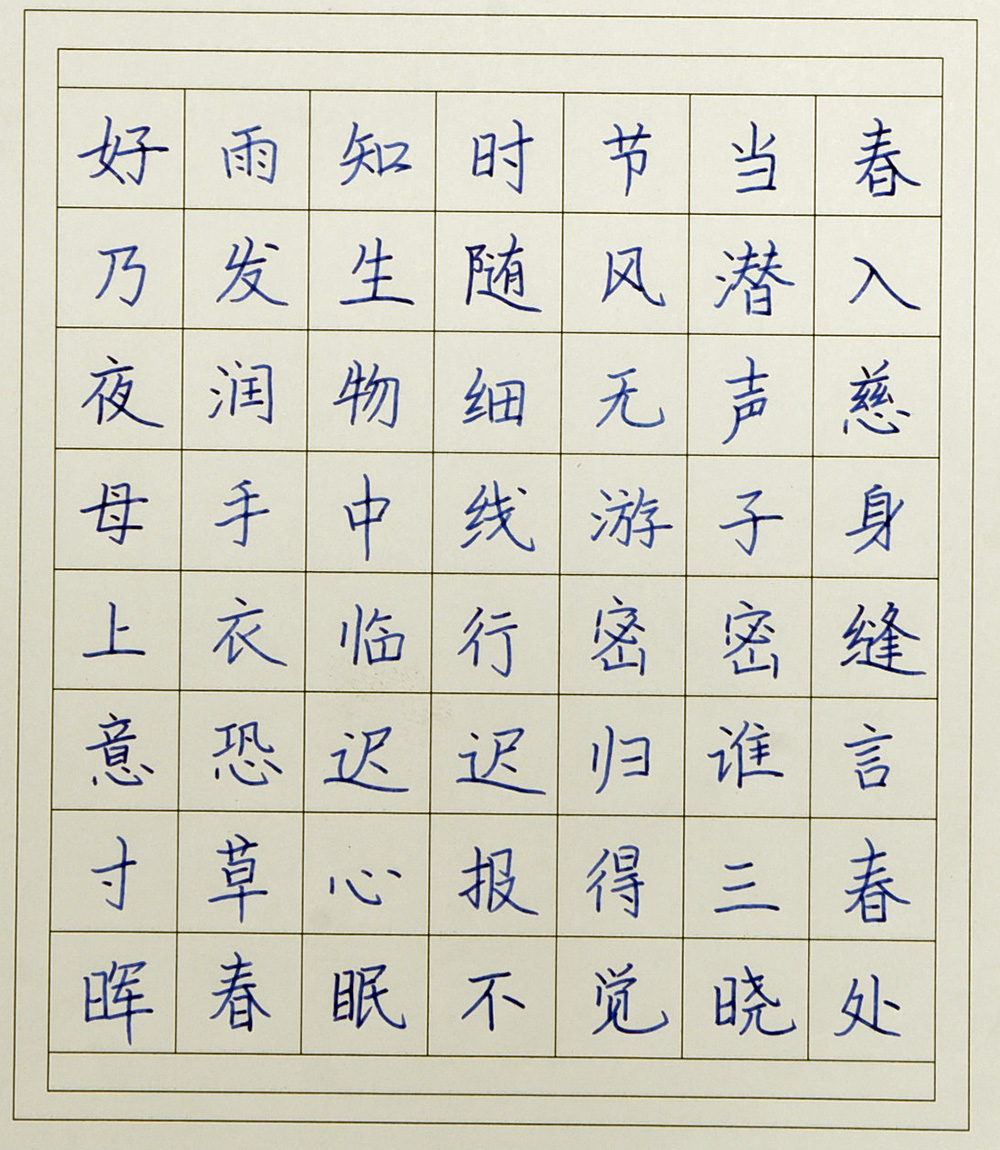 好雨知时节当春
乃发生随风潜入
夜润物细无声慈
母手中线游子身
上衣临行密密缝
意恐迟迟归谁言
寸草心报得三春
晖春眠不觉晓处